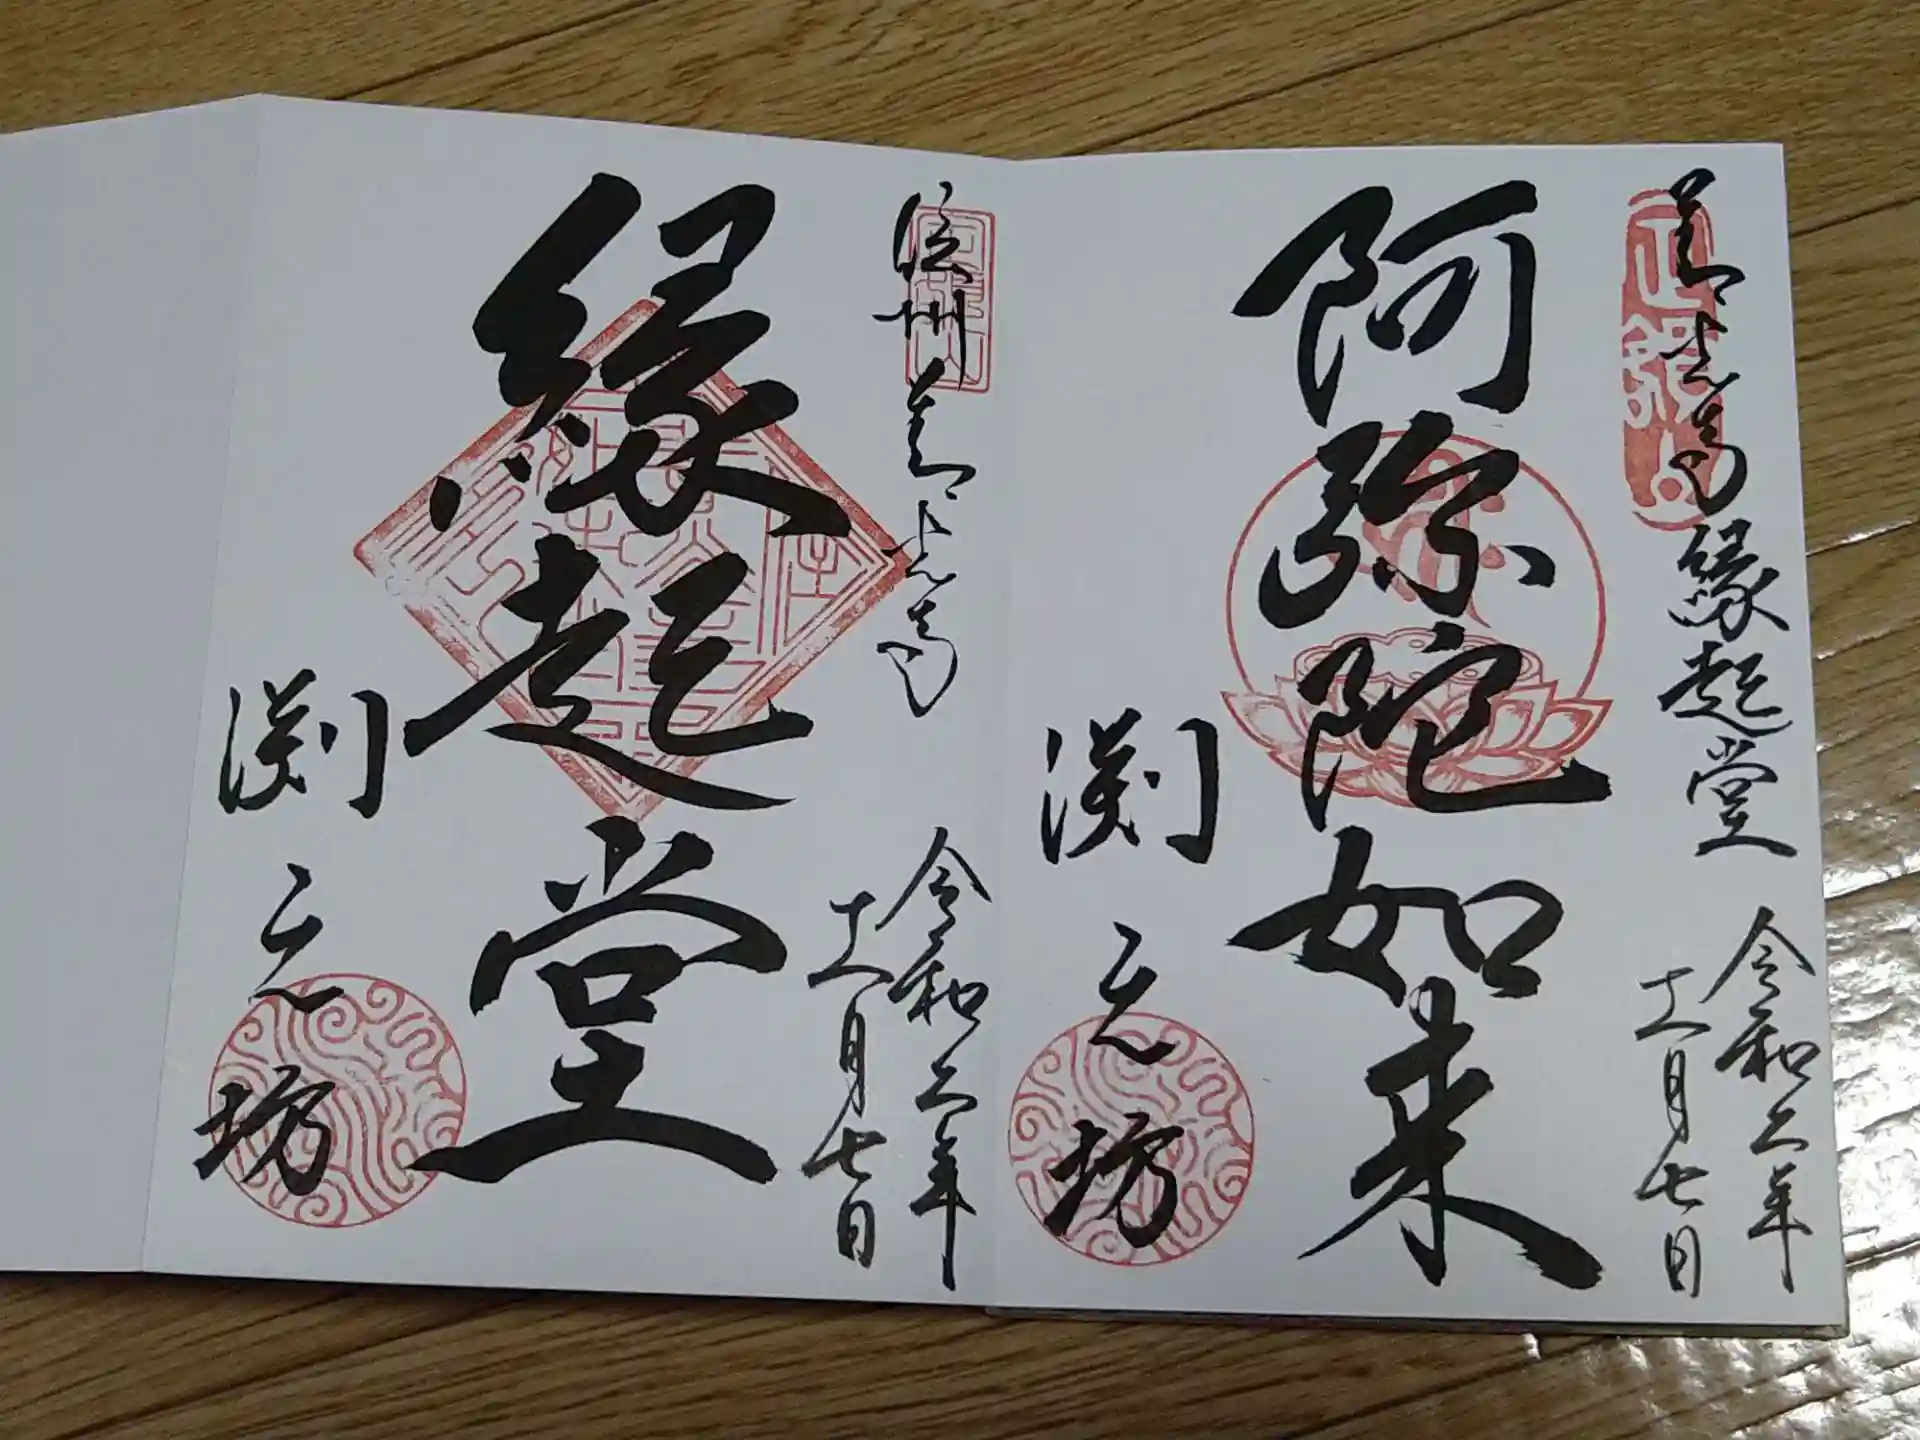 善光寺縁起堂
令和二年
十一月七日
阿弥陀如来
渕之坊
信州善光寺
令和二年
十一月七日
縁起堂
渕之坊